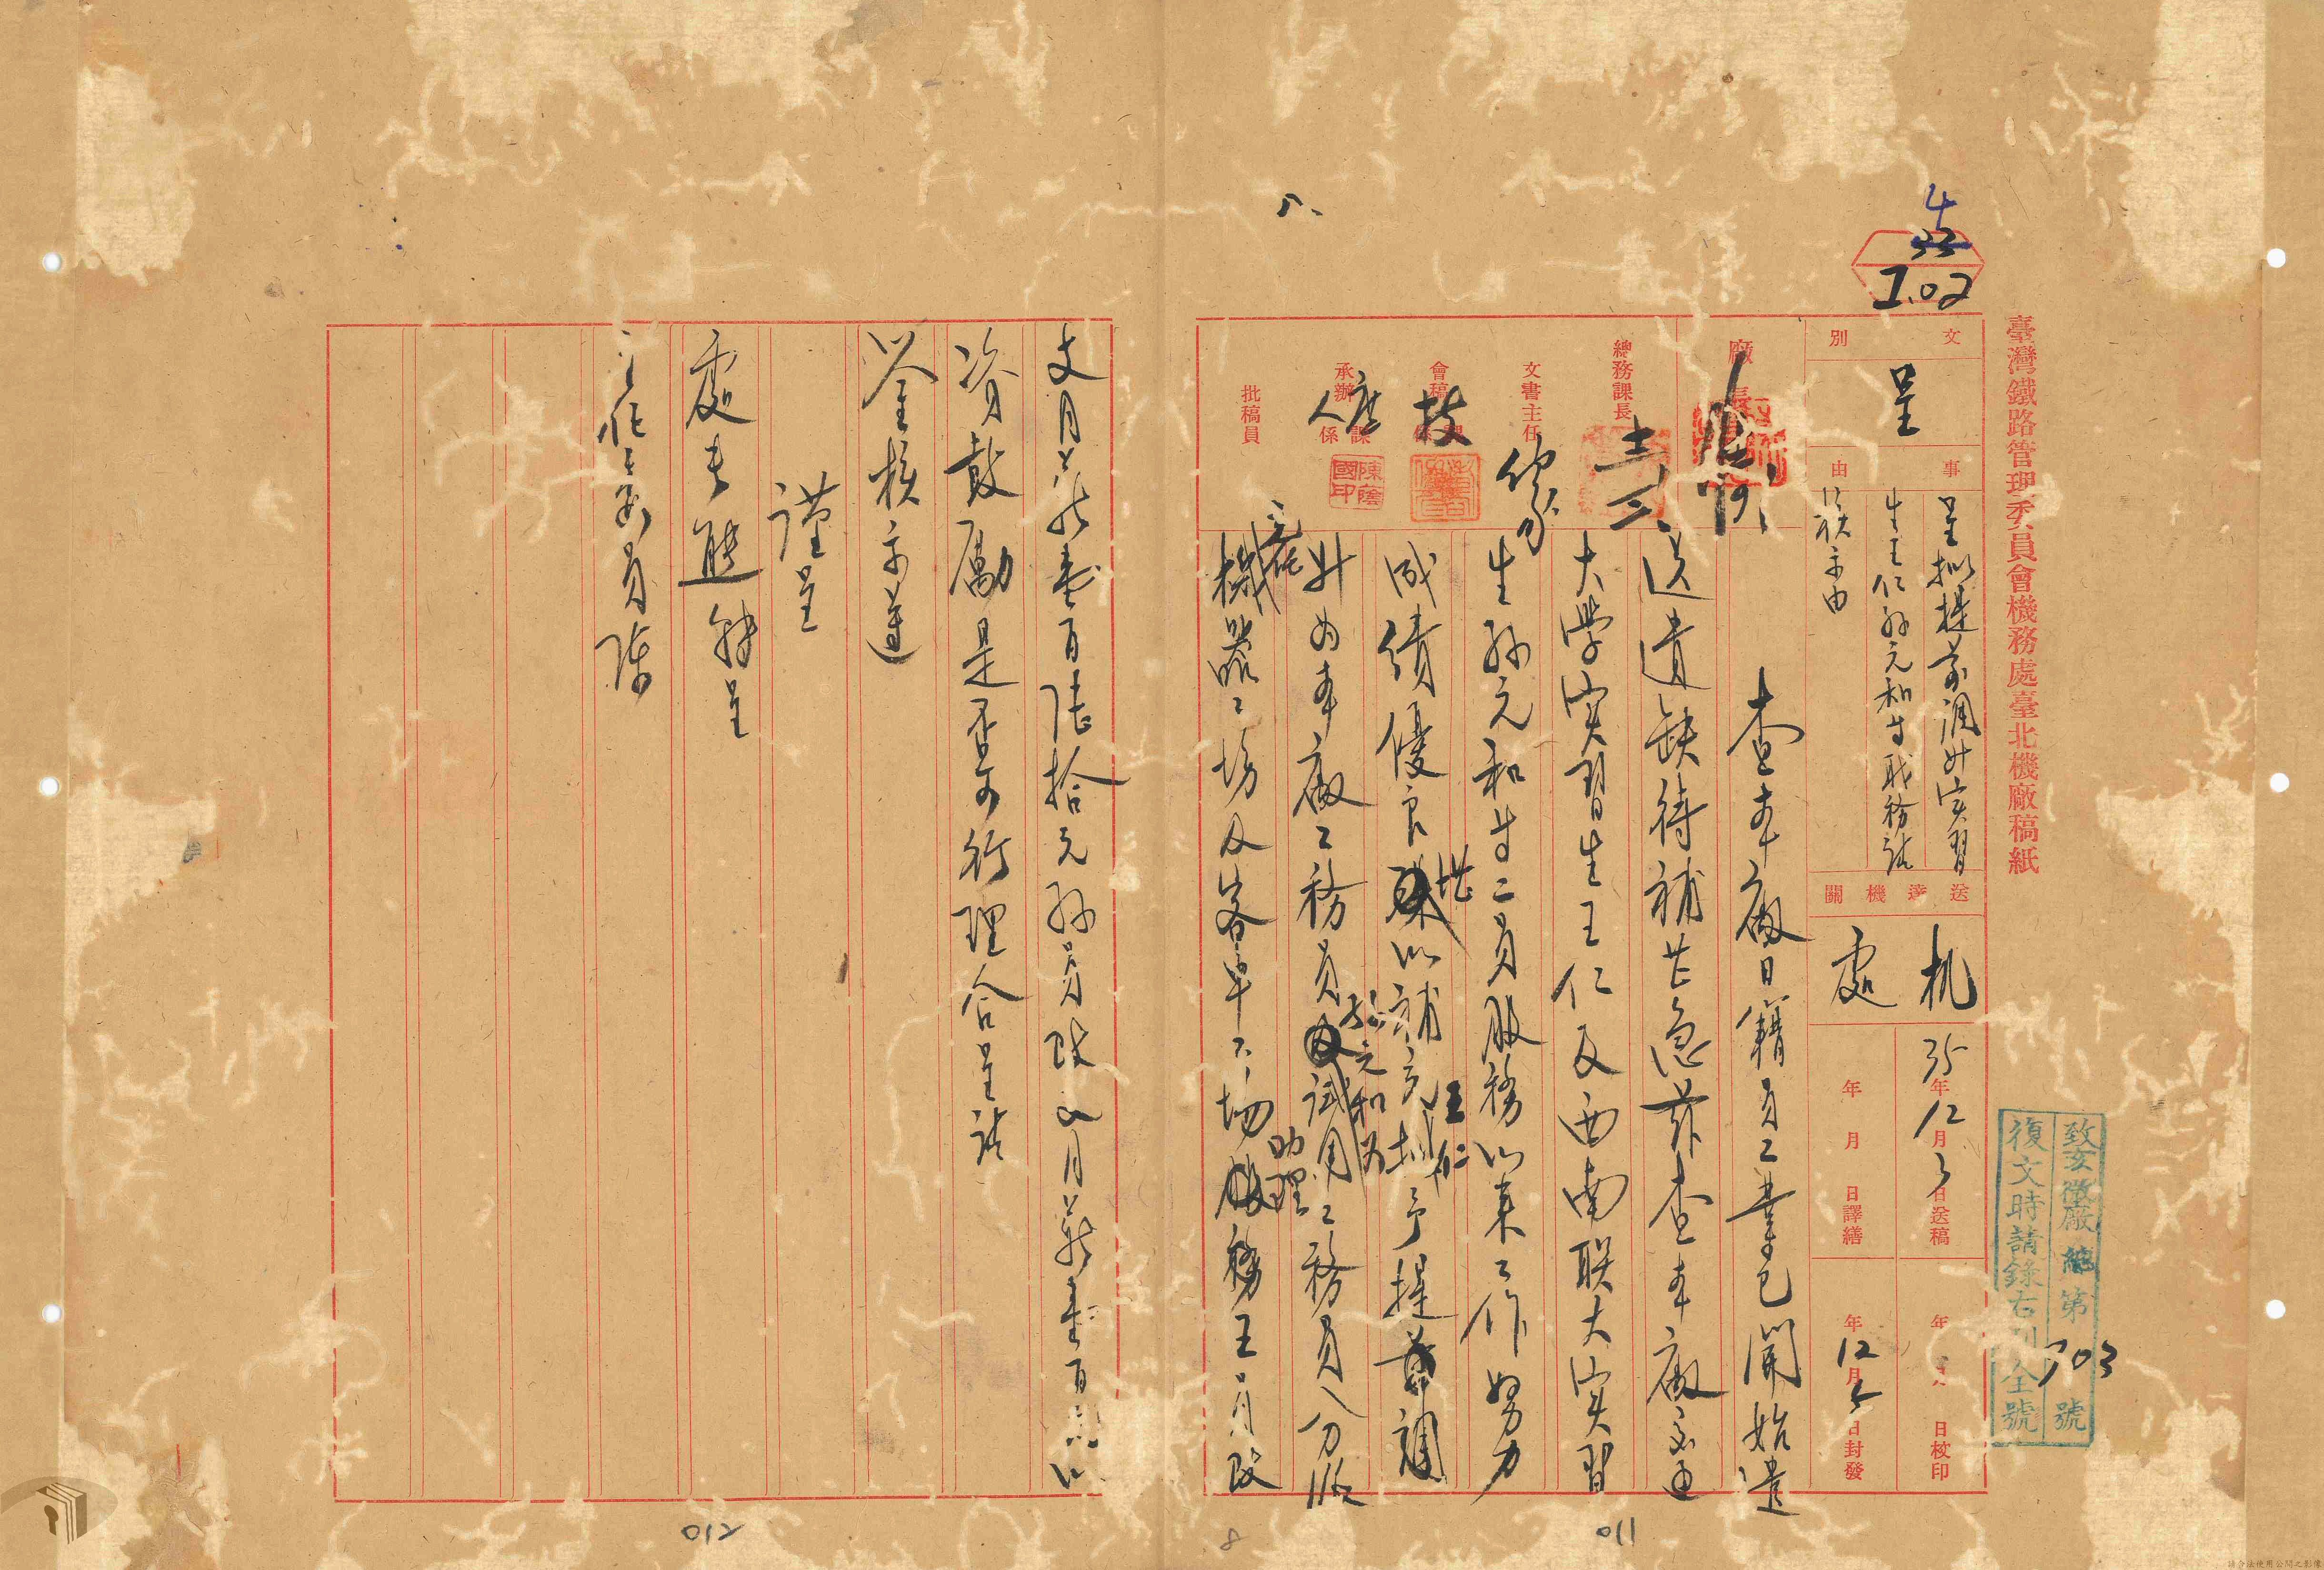 臺灣鐵路管理委員會機務處臺北機廠稿紙
33
I.02
文別
呈
事由
呈擬提前調升實習
生王仁孫元和等職務請
核示由
送達機關
机處
35年12月3日送稿
年月日譯繕
年 日校印
年12月5日封發
致字徵廠總第703號
復文時請錄右列全號
廠長
總務課長
文書主任
會稿
技
承辦課係
人
批稿員
陳蔭國印
查本廠日籍員工業已開始遣
送遺缺待補甚急茲查本廠交通
大學實習生王仁及西南联大實習
生孫元和等二員服務以來工作努力
成績優良堪以補充擬予提前調
王仁
升為本廠工務員試用工務員分派
孫元和為
助理
機器工場及客車工場服務王員改
支月薪壹百陆拾元孫員改山月薪壹百
資鼓勵是否可行理合呈請
鉴核示遵
謹呈
處長熊 轉呈
主任委員陳
011
012
8